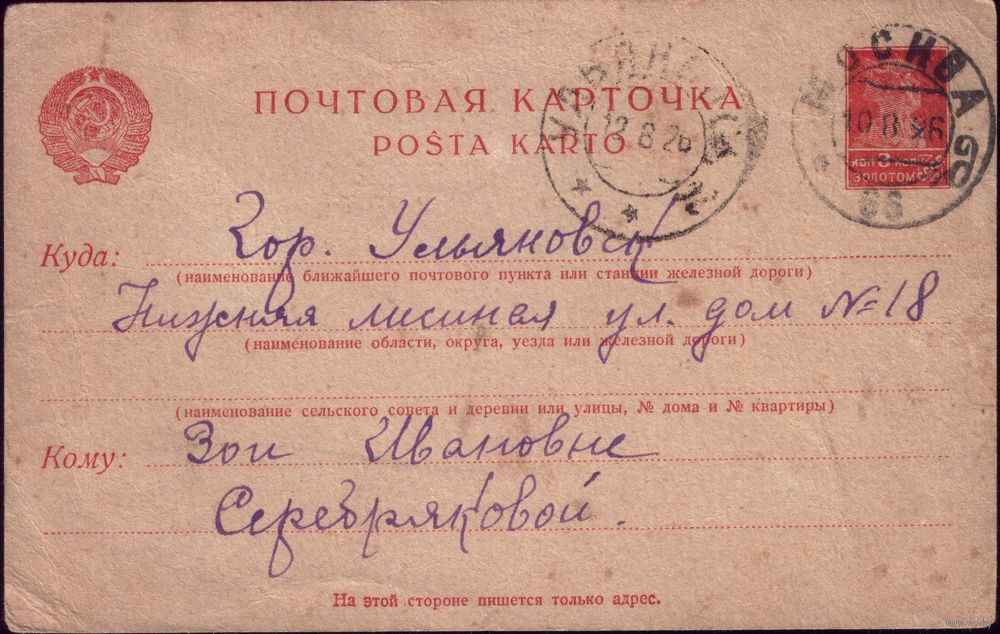 ПОЧТОВАЯ КАРТОЧКА
POŜTA KARTO
МОСКВА
10 8 26
КОП ЗОЛОТОМ
66
УЛЬЯНОВСК
12 8 26
Куда: Гор. Ульяновск
(наименование ближайшего почтового пункта или станции железной дороги)
Нижняя лисиная ул. дом № 18
(наименование области, округа, уезда или железной дороги)
(наименование сельского совета и деревни или улицы, № дома и № квартиры)
Кому: Зои Ивановне
Серебряковой.
На этой стороне пишется только адрес.